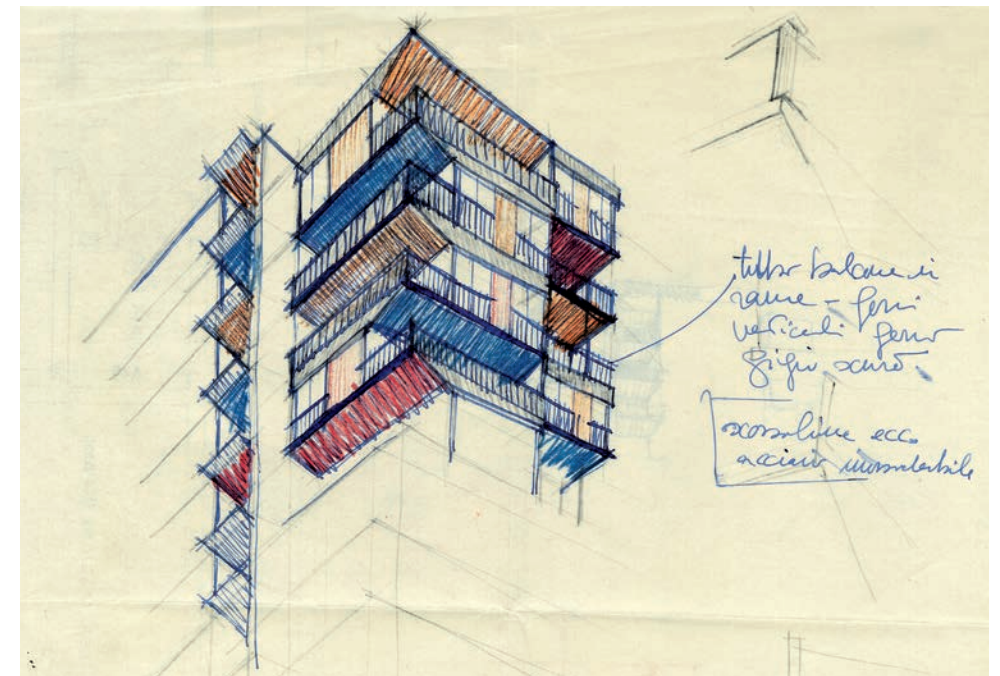 balcone in
rame - ferri
verticali ferro
grigio scuro
scossaline ecc.
acciaio inossidabile